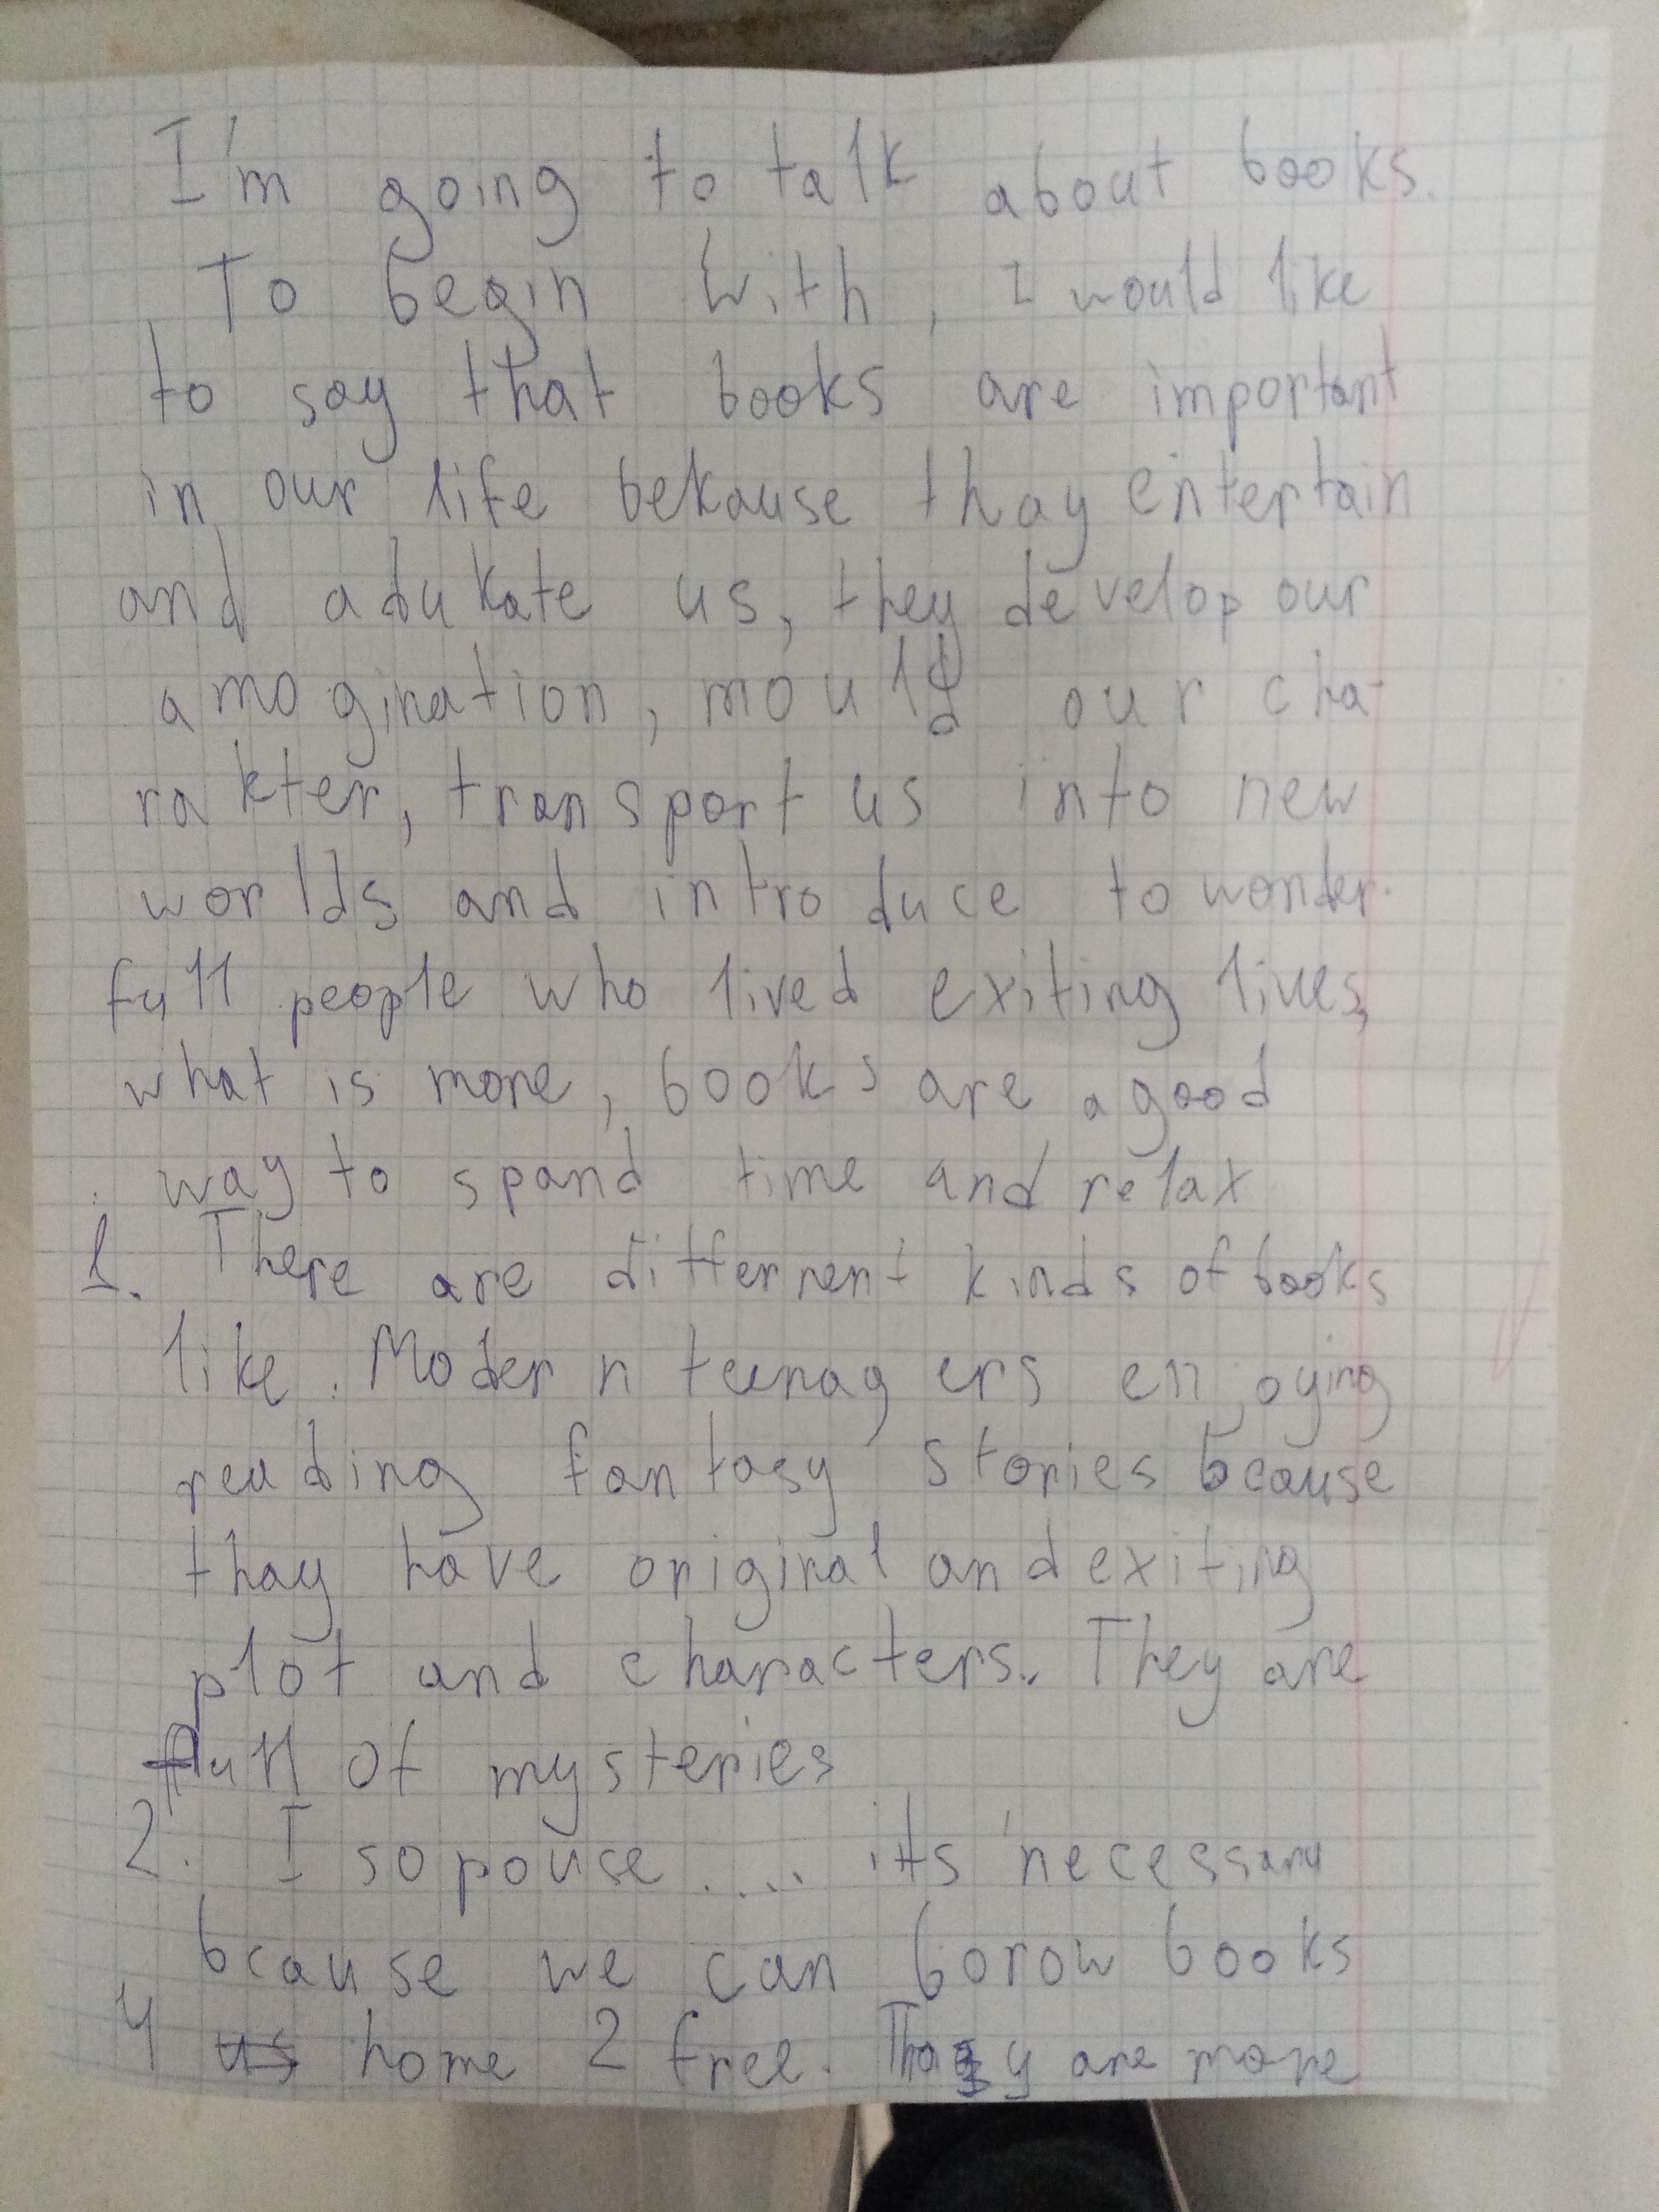 I'm going to talk about books.
To begin with, I would like
to say that books are important
in our life bekause thay entertain
and adukate us, they develop our
amogination, mould our cha-
rakter, transport us into new
worlds and introduce to wonder-
full people who lived exiting lives,
what is more, books are a good
way to spand time and relax
1. There are differrent kinds of books
like. Modern teenagers enjoying
reading fantasy stories bcause
thay have original and exiting
plot and characters. They are
full of mysteries
2. I sopouse .... it's necessary
bcause we can borow books
4 us home 2 free. Thay are more